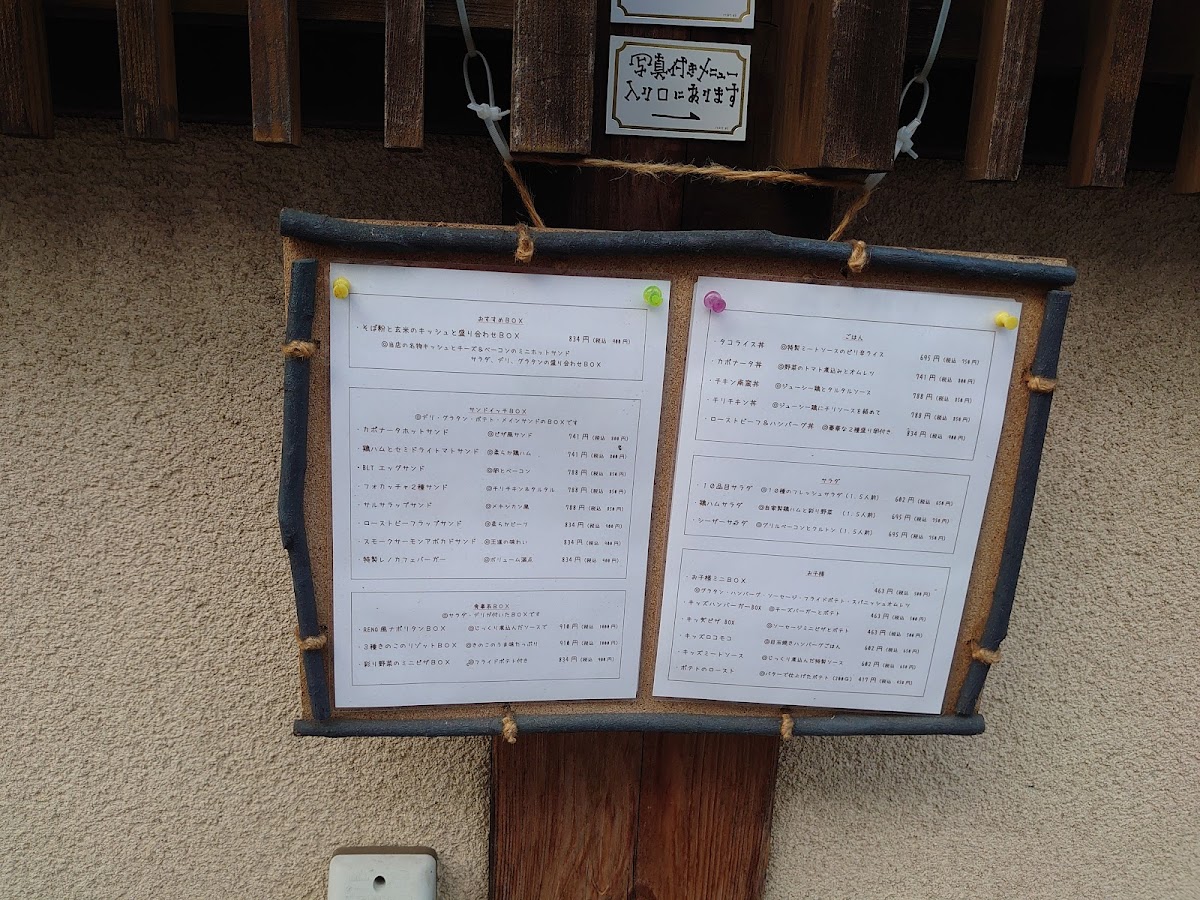 写真付きメニュー
入り口にあります
→
おすすめBOX
・そば粉と玄米のキッシュと盛り合わせBOX 834円(税込 900円)
◎当店の名物キッシュとチーズ&ベーコンのミニホットサンド
サラダ、デリ、グラタンの盛り合わせBOX
サンドイッチBOX
◎デリ・グラタン・ポテト・メインサンドのBOXです
・カポナータホットサンド ◎ピザ風サンド 741円(税込 800円)
・鶏ハムとセミドライトマトサンド ◎柔らか鶏ハム 741円(税込 800円)
・BLTエッグサンド ◎卵とベーコン 788円(税込 850円)
・フォカッチャ2種サンド ◎チリチキン&タルタル 788円(税込 850円)
・サルサラップサンド ◎メキシカン風 788円(税込 850円)
・ローストビーフラップサンド ◎柔らかビーフ 834円(税込 900円)
・スモークサーモンアボカドサンド ◎王道の味わい 834円(税込 900円)
・特製レノカフェバーガー ◎ボリューム満点 834円(税込 900円)
食事系BOX
◎サラダ・デリが付いたBOXです
・RENO風ナポリタンBOX ◎じっくり煮込んだソースで 910円(税込
・3種きのこのリゾットBOX ◎きのこのうま味たっぷり 910円(税込
・彩り野菜のミニピザBOX ◎フライドポテト付き 834円(税込 900円)
ごはん
・タコライス丼 ◎特製ミートソースのピリ辛ライス 695円(税込 750円)
・カポナータ丼 ◎野菜のトマト煮込みとオムレツ 741円(税込 800円)
・チキン南蛮丼 ◎ジューシー鶏とタルタルソース 788円(税込 850円)
・チリチキン丼 ◎ジューシー鶏にチリソースを絡めて 788円(税込 850円)
・ローストビーフ&ハンバーグ丼 ◎豪華な2種盛り卵付き 834円(税込 900円)
サラダ
・10品目サラダ ◎10種のフレッシュサラダ(1.5人前) 602円(税込 650円)
・鶏ハムサラダ ◎自家製鶏ハムと彩り野菜 (1.5人前) 695円(税込 750円)
・シーザーサラダ ◎グリルベーコンとクルトン(1.5人前) 695円(税込 750円)
お子様
・お子様ミニBOX 463円(税込 500円)
◎グラタン・ハンバーグ・ソーセージ・フライドポテト・スパニッシュオムレツ
・キッズハンバーガーBOX ◎チーズバーガーとポテト 463円(税込 500円)
・キッズピザBOX ◎ソーセージミニピザとポテト 463円(税込 500円)
・キッズロコモコ ◎目玉焼きハンバーグごはん 602円(税込 650円)
・キッズミートソース ◎じっくり煮込んだ特製ソース 602円(税込 650円)
・ポテトのロースト ◎バターで仕上げたポテト(200G) 417円(税込 450円)